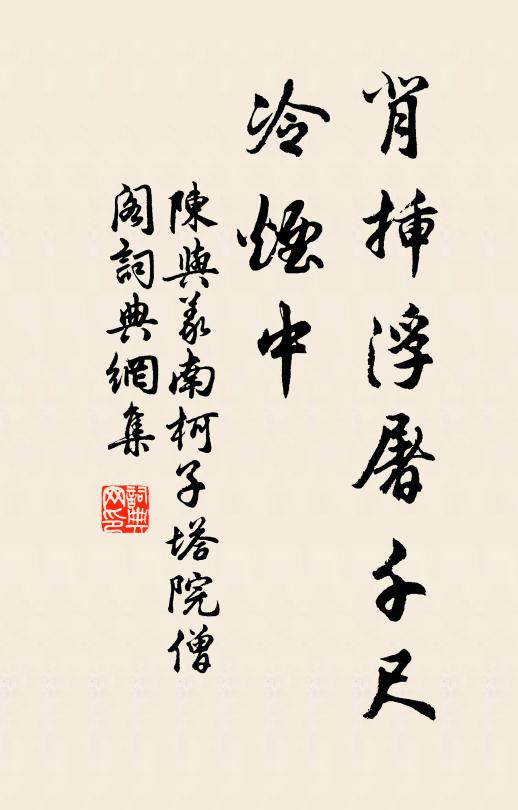 肖揷浮屠千尺
冷煙中
陳與義南柯子塔院僧
閣詞典網集
詞典
网印